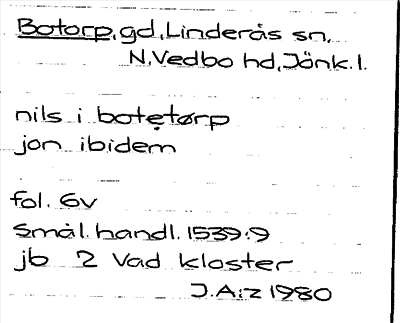 Botorp, gd, Linderås sn,
N. Vedbo hd, Jönk. l.
nils i botetørp
jon ibidem
fol. 6v
Smål. handl. 1539:9
jb 2 Vad kloster
J.A:z 1980